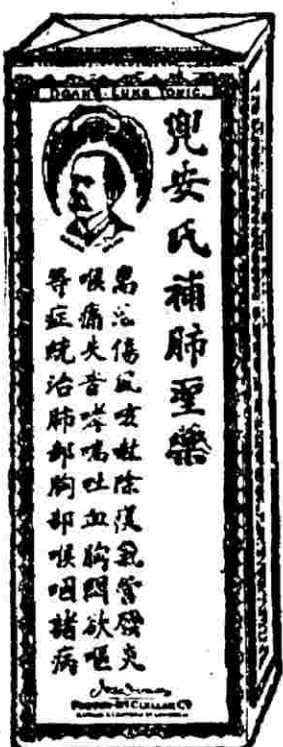 DOAN'S LUNG TONIC
兜安氏補肺聖藥
傷風咳嗽除痰氣管發炎
喉痛失音哮喘吐血胸悶欲嘔
等症統治肺部胸部喉咽諸病
FOSTER-McCLELLAN CO